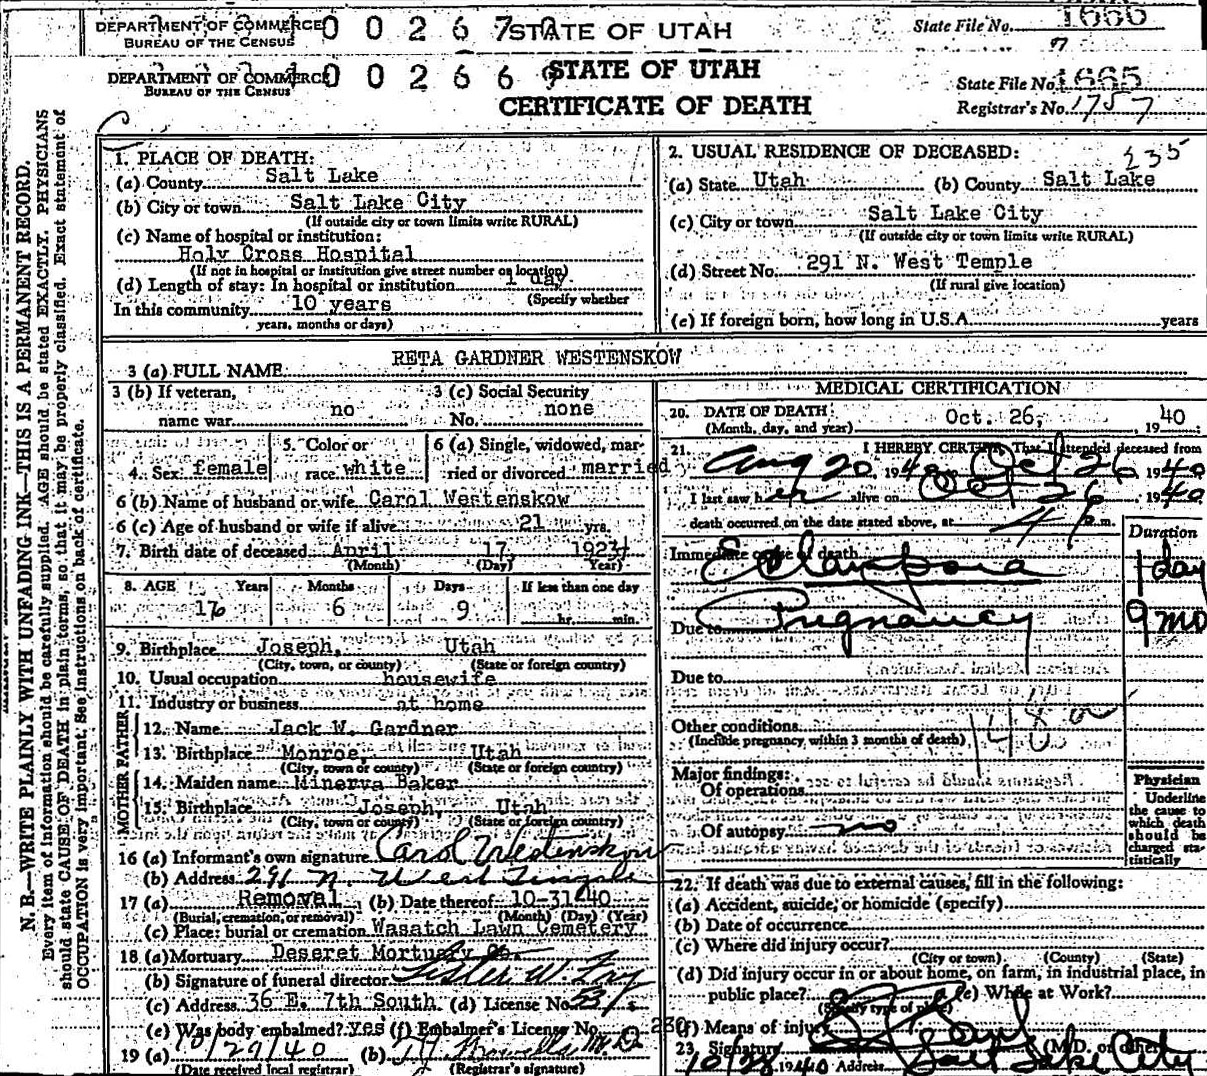 DEPARTMENT OF COMMERCE 0 0 2 6 7 STATE OF UTAH State File No. 1666
BUREAU OF THE CENSUS
DEPARTMENT OF COMMERCE 0 0 2 6 6 9 STATE OF UTAH State File No. 1665
BUREAU OF THE CENSUS
CERTIFICATE OF DEATH Registrar's No. 1757
N. B.—WRITE PLAINLY WITH UNFADING INK—THIS IS A PERMANENT RECORD.
Every item of information should be carefully supplied. AGE should be stated EXACTLY. PHYSICIANS
should state CAUSE OF DEATH in plain terms, so that it may be properly classified. Exact statement of
OCCUPATION is very important. See instructions on back of certificate.
1. PLACE OF DEATH:
(a) County Salt Lake
(b) City or town Salt Lake City
(If outside city or town limits write RURAL)
(c) Name of hospital or institution:
Holy Cross Hospital
(If not in hospital or institution give street number or location)
(d) Length of stay: In hospital or institution 1 day
(Specify whether
In this community 10 years
years, months or days)
2. USUAL RESIDENCE OF DECEASED: 235
(a) State Utah (b) County Salt Lake
(c) City or town Salt Lake City
(If outside city or town limits write RURAL)
(d) Street No. 291 N. West Temple
(If rural give location)
(e) If foreign born, how long in U.S.A. years
3 (a) FULL NAME RETA GARDNER WESTENSKOW
3 (b) If veteran, 3 (c) Social Security
name war no No. none
4. Sex female 5. Color or race white 6 (a) Single, widowed, mar-
ried or divorced married
6 (b) Name of husband or wife Carol Westenskow
6 (c) Age of husband or wife if alive 21 yrs.
7. Birth date of deceased April 17, 1924
(Month) (Day) Year)
8. AGE Years Months Days If less than one day
16 6 9 hr. min.
9. Birthplace Joseph, Utah
(City, town, or county) (State or foreign country)
10. Usual occupation housewife
11. Industry or business at home
FATHER
12. Name Jack W. Gardner
13. Birthplace Monroe, Utah
(City, town or county) (State or foreign country)
MOTHER
14. Maiden name Minerva Baker
15. Birthplace Joseph, Utah
(City, town or county) (State or foreign country)
16 (a) Informant's own signature Carol Westenskow
(b) Address 291 N. West Temple
17 (a) Removal (b) Date thereof 10-31-40
(Burial, cremation, or removal) (Month) (Day) (Year)
(c) Place: burial or cremation Wasatch Lawn Cemetery
18 (a) Mortuary Deseret Mortuary Co.
(b) Signature of funeral director Lester W. Fay
(c) Address 36 E. 7th South (d) License No. 531
(e) Was body embalmed? yes (f) Embalmer's License No. 230
19 (a) 10/29/40 (b) M.D.
(Date received local registrar) (Registrar's signature)
MEDICAL CERTIFICATION
20. DATE OF DEATH: Oct. 26, 1940
(Month, day, and year)
21. I HEREBY CERTIFY, That I attended deceased from
Aug 20 1940 to Oct 26 1940
I last saw her alive on Oct 26 1940
death occurred on the date stated above, at P.m.
Duration
Immediate cause of death
Eclampsia 1 day
Due to Pregnancy 9 mo
Due to
Other conditions 148 a
(Include pregnancy within 3 months of death)
Major findings:
Of operations
Of autopsy no
Physician
Underline
the cause to
which death
should be
charged sta-
tistically
22. If death was due to external causes, fill in the following:
(a) Accident, suicide, or homicide (specify)
(b) Date of occurrence
(c) Where did injury occur?
(City or town) (County) (State)
(d) Did injury occur in or about home, on farm, in industrial place, in
public place? (e) While at Work?
(Specify type of place)
(f) Means of injury
23. Signature (M.D. or other)
10/28 1940 Address Salt Lake City